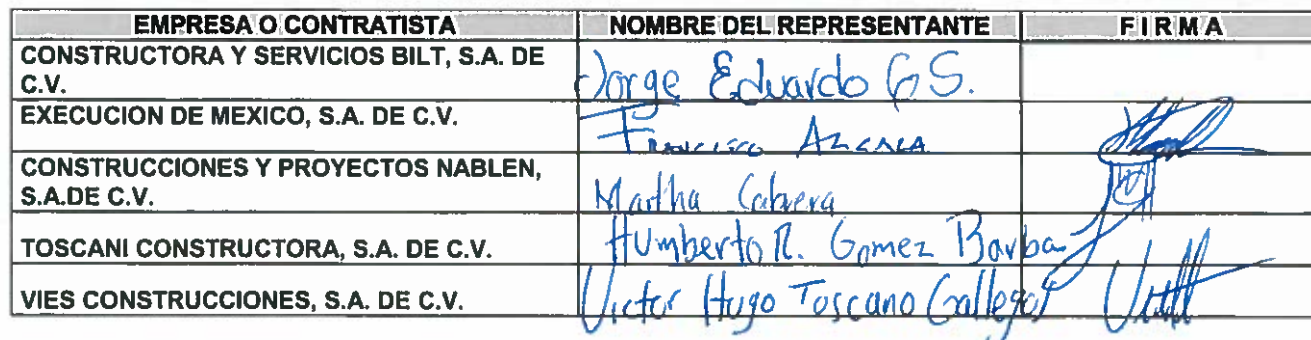 EMPRESA O CONTRATISTA NOMBRE DEL REPRESENTANTE FIRMA
CONSTRUCTORA Y SERVICIOS BILT, S.A. DE
C.V. Jorge Eduardo G S.
EXECUCION DE MEXICO, S.A. DE C.V.
Francisco Azcarca
CONSTRUCCIONES Y PROYECTOS NABLEN,
S.A.DE C.V. Martha Cabrera
TOSCANI CONSTRUCTORA, S.A. DE C.V. Humberto R. Gomez Barba
VIES CONSTRUCCIONES, S.A. DE C.V. Victor Hugo Toscano Gallegos